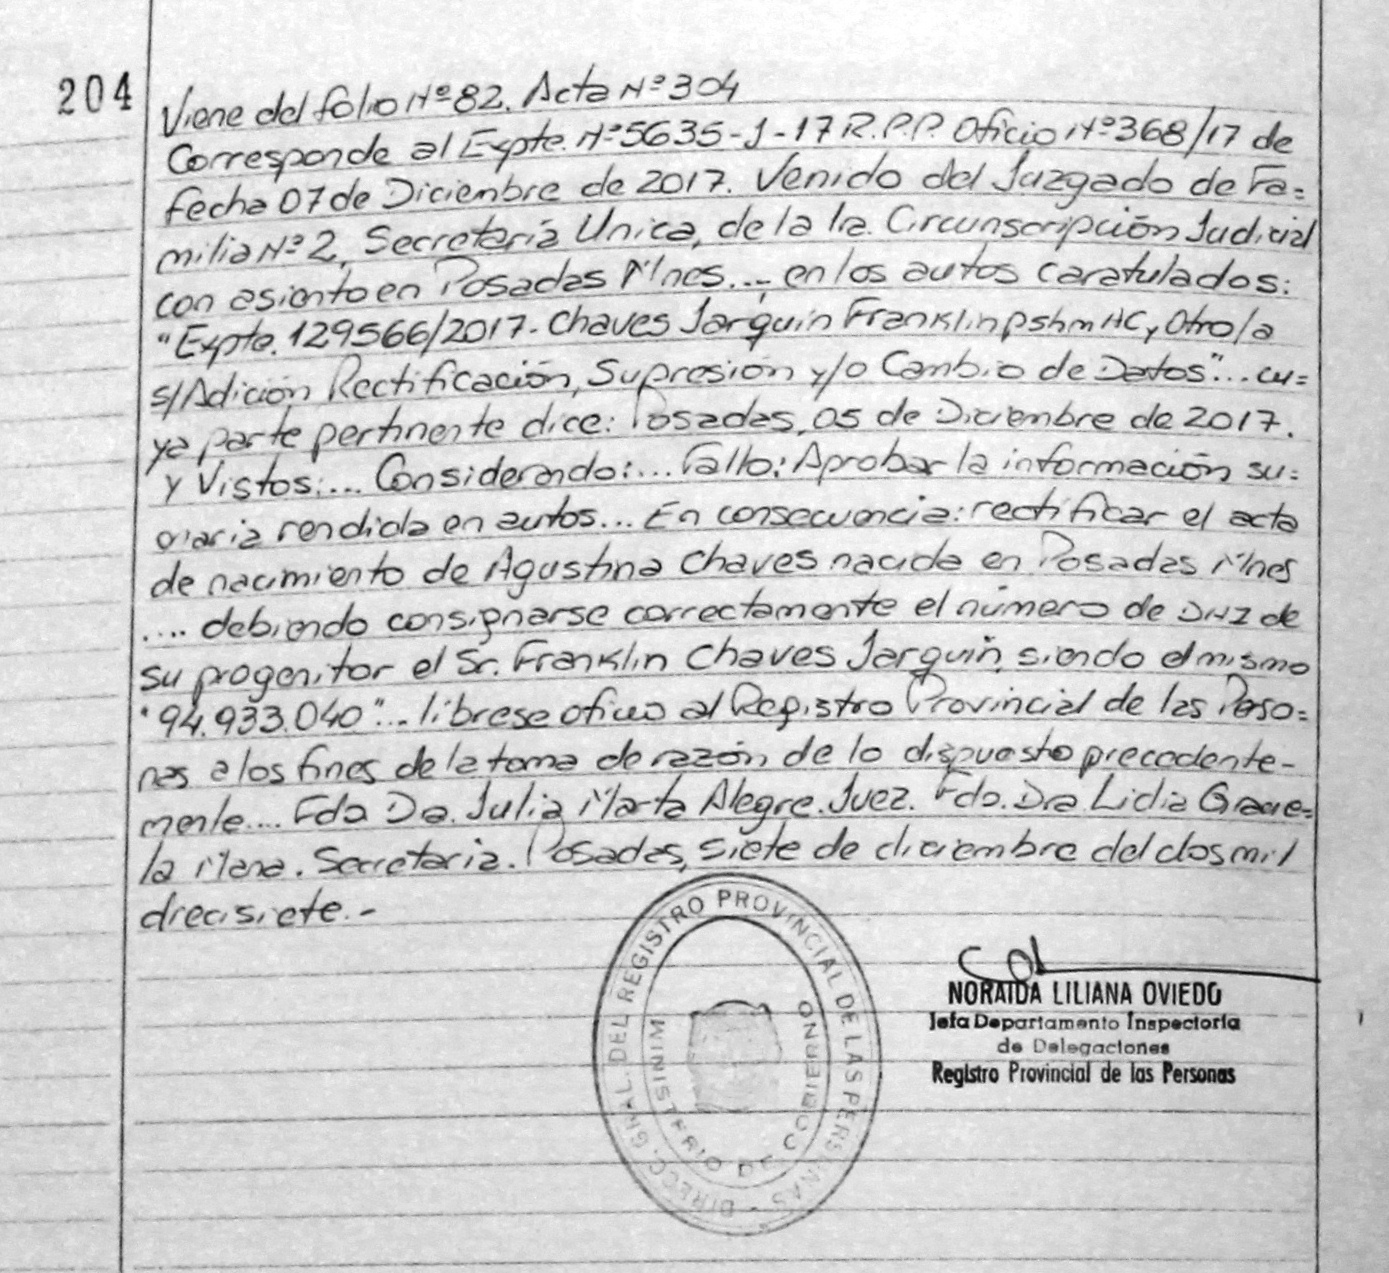 204
Viene del folio Nº 82. Acta Nº 304
Corresponde al Expte. Nº 5635-J-17 R.P.P. Oficio Nº 368/17 de
fecha 07 de Diciembre de 2017. Venido del Juzgado de Fa=
milia Nº 2, Secretaría Unica, de la 1ra. Circunscripción Judicial
con asiento en Posadas Mnes... en los autos caratulados:
"Expte. 129566/2017- Chaves Jarquin Franklin pshmAC y Otro/a
s/Adición Rectificación, Supresión y/o Cambio de Datos"... cu=
ya parte pertinente dice: Posadas, 05 de Diciembre de 2017.
y Vistos:... Considerando:... Fallo: Aprobar la información su=
maria rendida en autos... En consecuencia: rectificar el acta
de nacimiento de Agustina Chaves nacida en Posadas Mnes
.... debiendo consignarse correctamente el número de DNI de
su progenitor el Sr. Franklin Chaves Jarquin, siendo el mismo
"94.933.040"... líbrese oficio al Registro Provincial de las Perso=
nas a los fines de la toma de razón de lo dispuesto precedente-
mente.... Fdo Dra. Julia Marta Alegre. Juez. Fdo. Dra Lidia Gracie=
la Mena. Secretaria. Posadas, siete de diciembre del dos mil
diecisiete.-
DIRECC. GRAL. DEL REGISTRO PROVINCIAL DE LAS PERSONAS -
MINISTERIO DE GOBIERNO
NORAIDA LILIANA OVIEDO
Jefa Departamento Inspectoria
de Delegaciones
Registro Provincial de las Personas